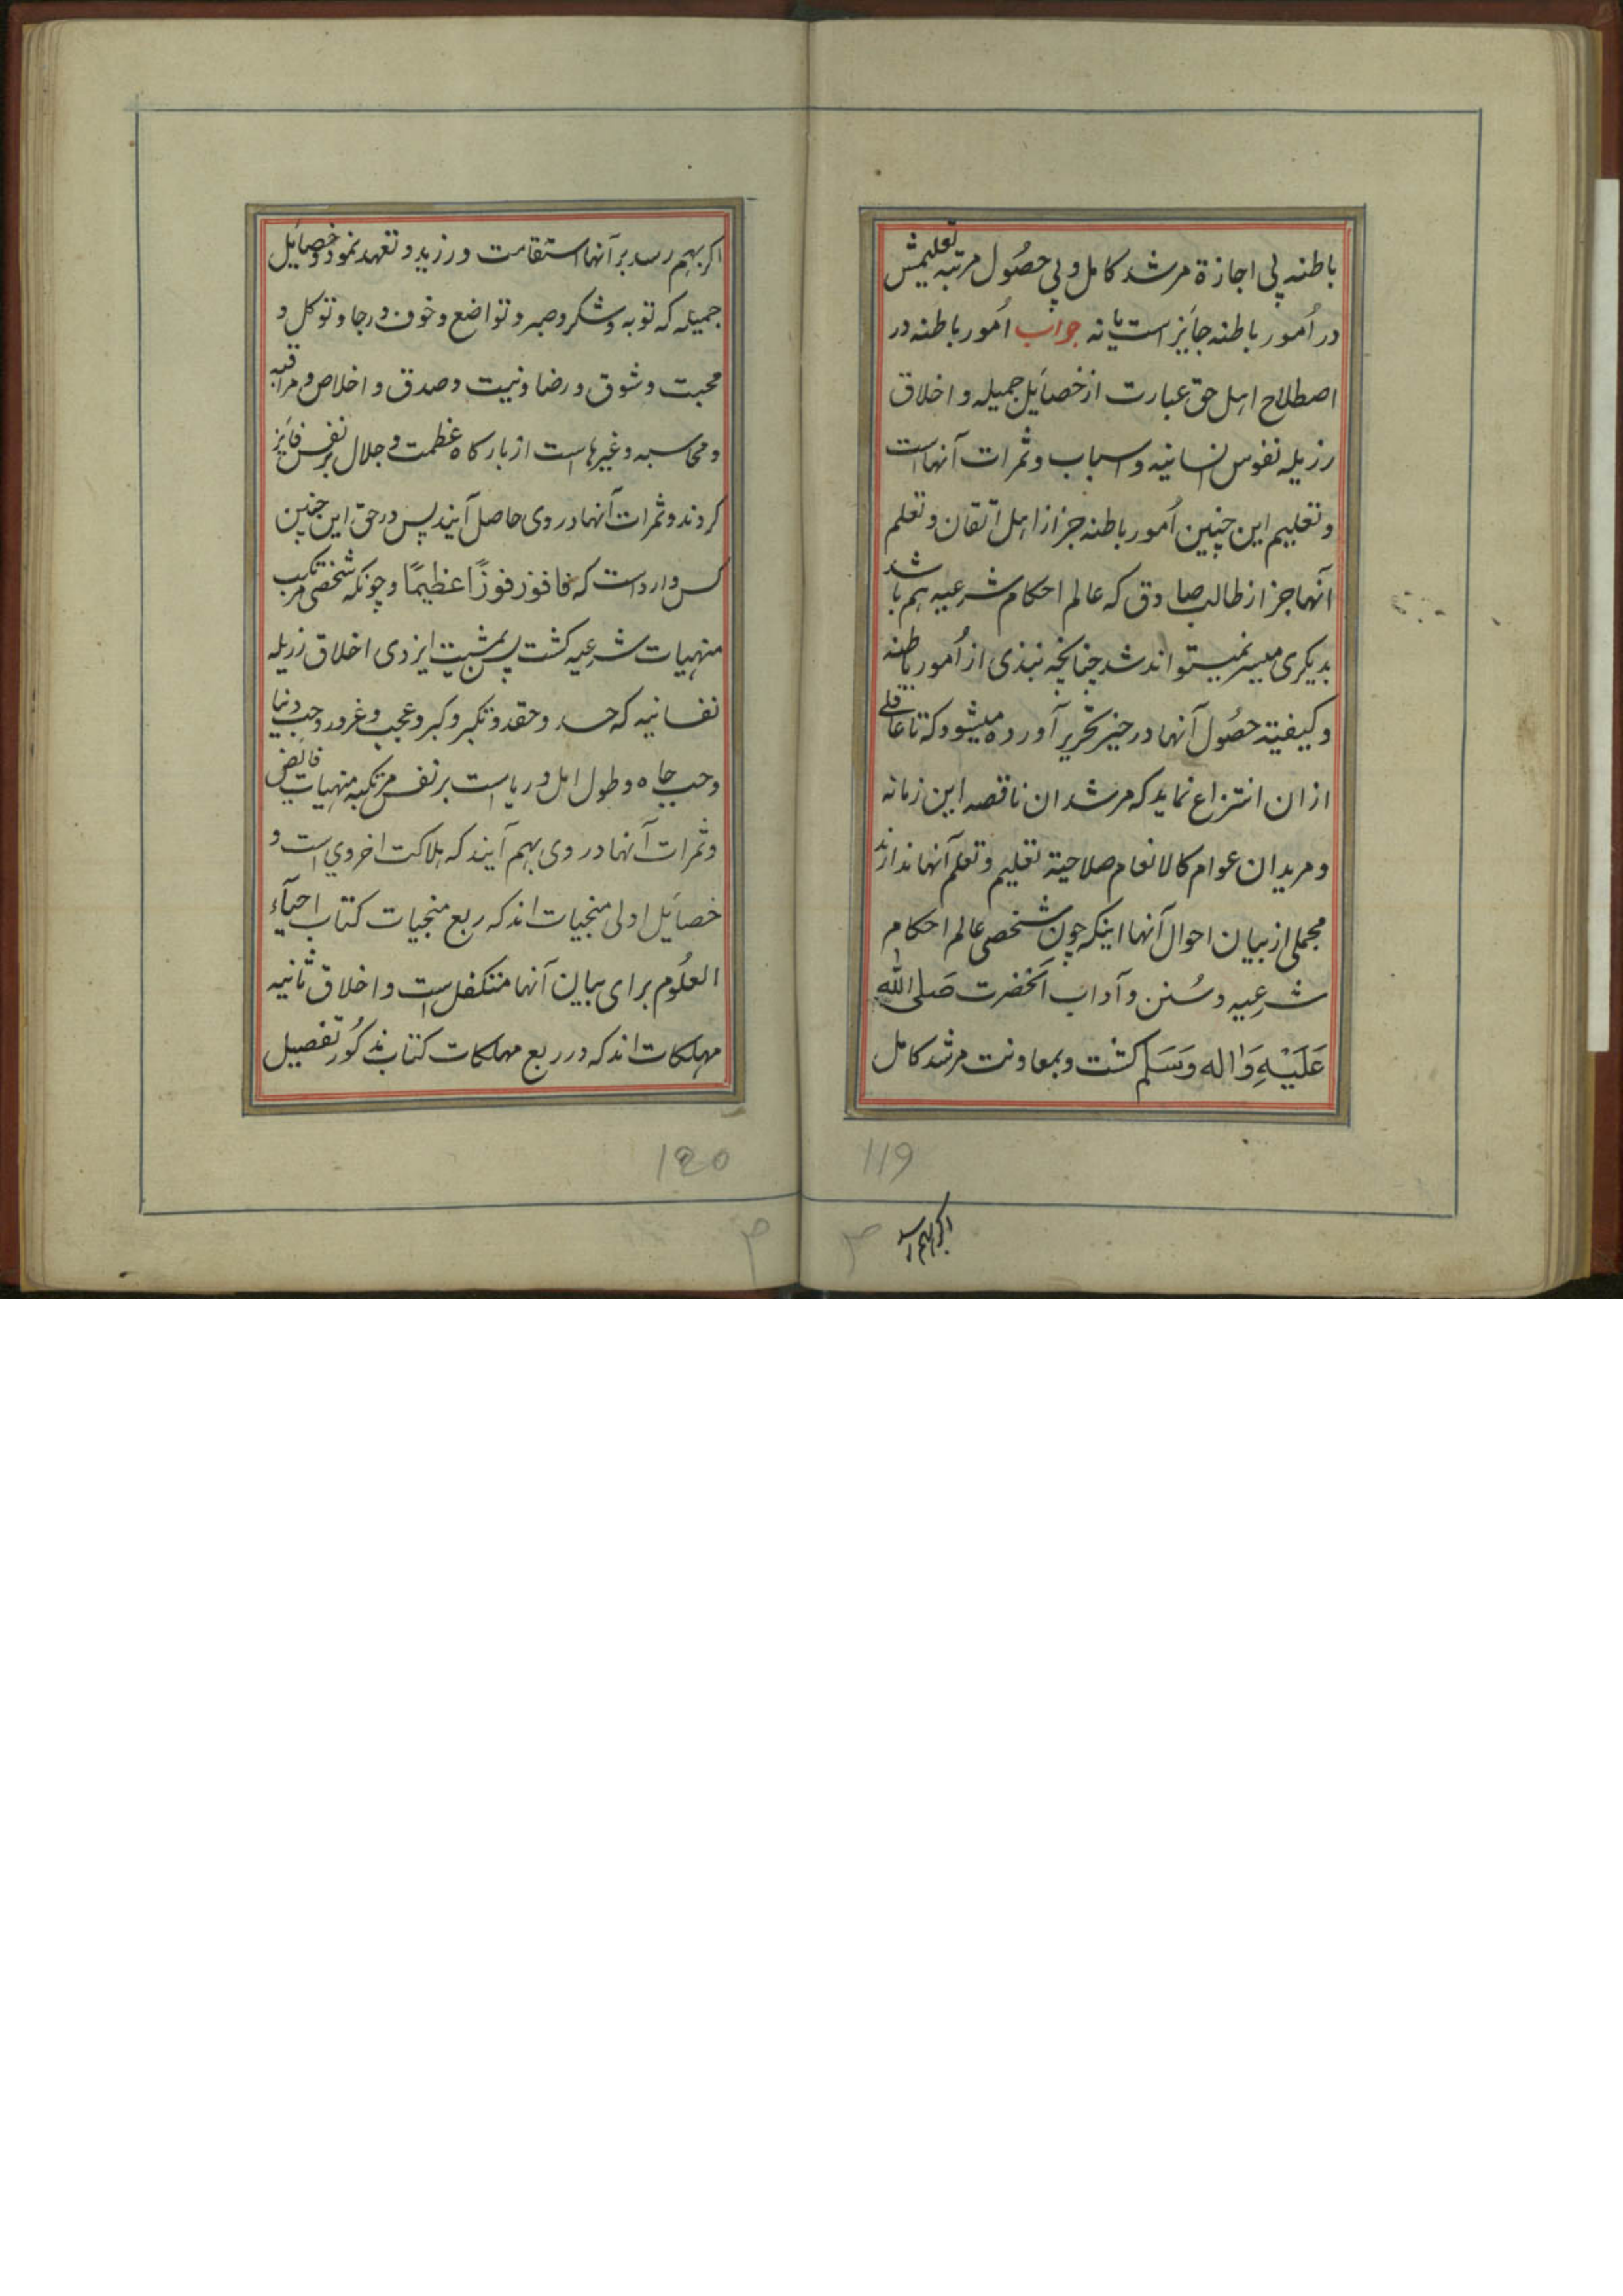 باطنه بی اجازة مرشد کامل و بی حصُول مرتبه تعلیمش
در اُمور باطنه جایٔز است یا نه جواب اُمور باطنه در
اصطلاح اهل حق عبارت از خصایٔل جمیله و اخلاق
رزیله نفوس انسانیه و اسباب و ثمرات آنهاست
و تعلیم این چنین اُمور باطنه جز از اهل اتقان و تعلم
آنها جز از طالب صادق که عالم احکام شرعیه هم باشد
بدیکری میسر نمیتواند شد چنانچه نبذی از اُمور باطنه
و کیفیة حصُول آنها در حیز تحریر آورده میشود که تا عاقلے
ازان انتزاع نماید که مرشدان ناقصه این زمانه
و مریدان عوام کالانعام صلاحیة تعلیم و تعلم آنها ندارند
مجملی از بیان احوال آنها اینکه چون شخصی عالم احکام
شرعیه و سُنن و آداب آنحضرت صَلی اللّه
عَلَیْهِ وَاٰله وَسَلم کشت و بمعاونت مرشد کامل
119
اکر بهم رسد
اکر بهم رسد بر آنها استقامت ورزید و تعهد نمود و خصایٔل
جمیله که توبه و شکر و صبر و تواضع و خوف و رجا و توکل و
محبت و شوق و رضا و نیت و صدق و اخلاص و مراقبه
و محاسبه و غیرها است از بارکاه عظمت و جلال بر نفس فایٔز
کردند و ثمرات آنها در وی حاصل آیند پس در حق این چنین
کس وارد است که فافوز فوزًا عظیمًا و چونکه شخصی مرتکب
منهیات شرعیه کشت پس بمشیت ایزدی اخلاق رزیله
نفسانیه که حسد و حقد و تکبر و کبر و عجب و غرور و حب دنیا
و حب جاه و طول امل و ریا است بر نفس مرتکبه منهیات فایٔض
و ثمرات آنها در وی بهم آیند که هلاکت اخروی است و
خصایٔل اولی منجیات اند که ربع منجیات کتاب احیآء
العلُوم برای بیان آنها متکفل است و اخلاق ثانیه
مهلکات اند که در ربع مهلکات کتاب مذکُور تفصیل
120